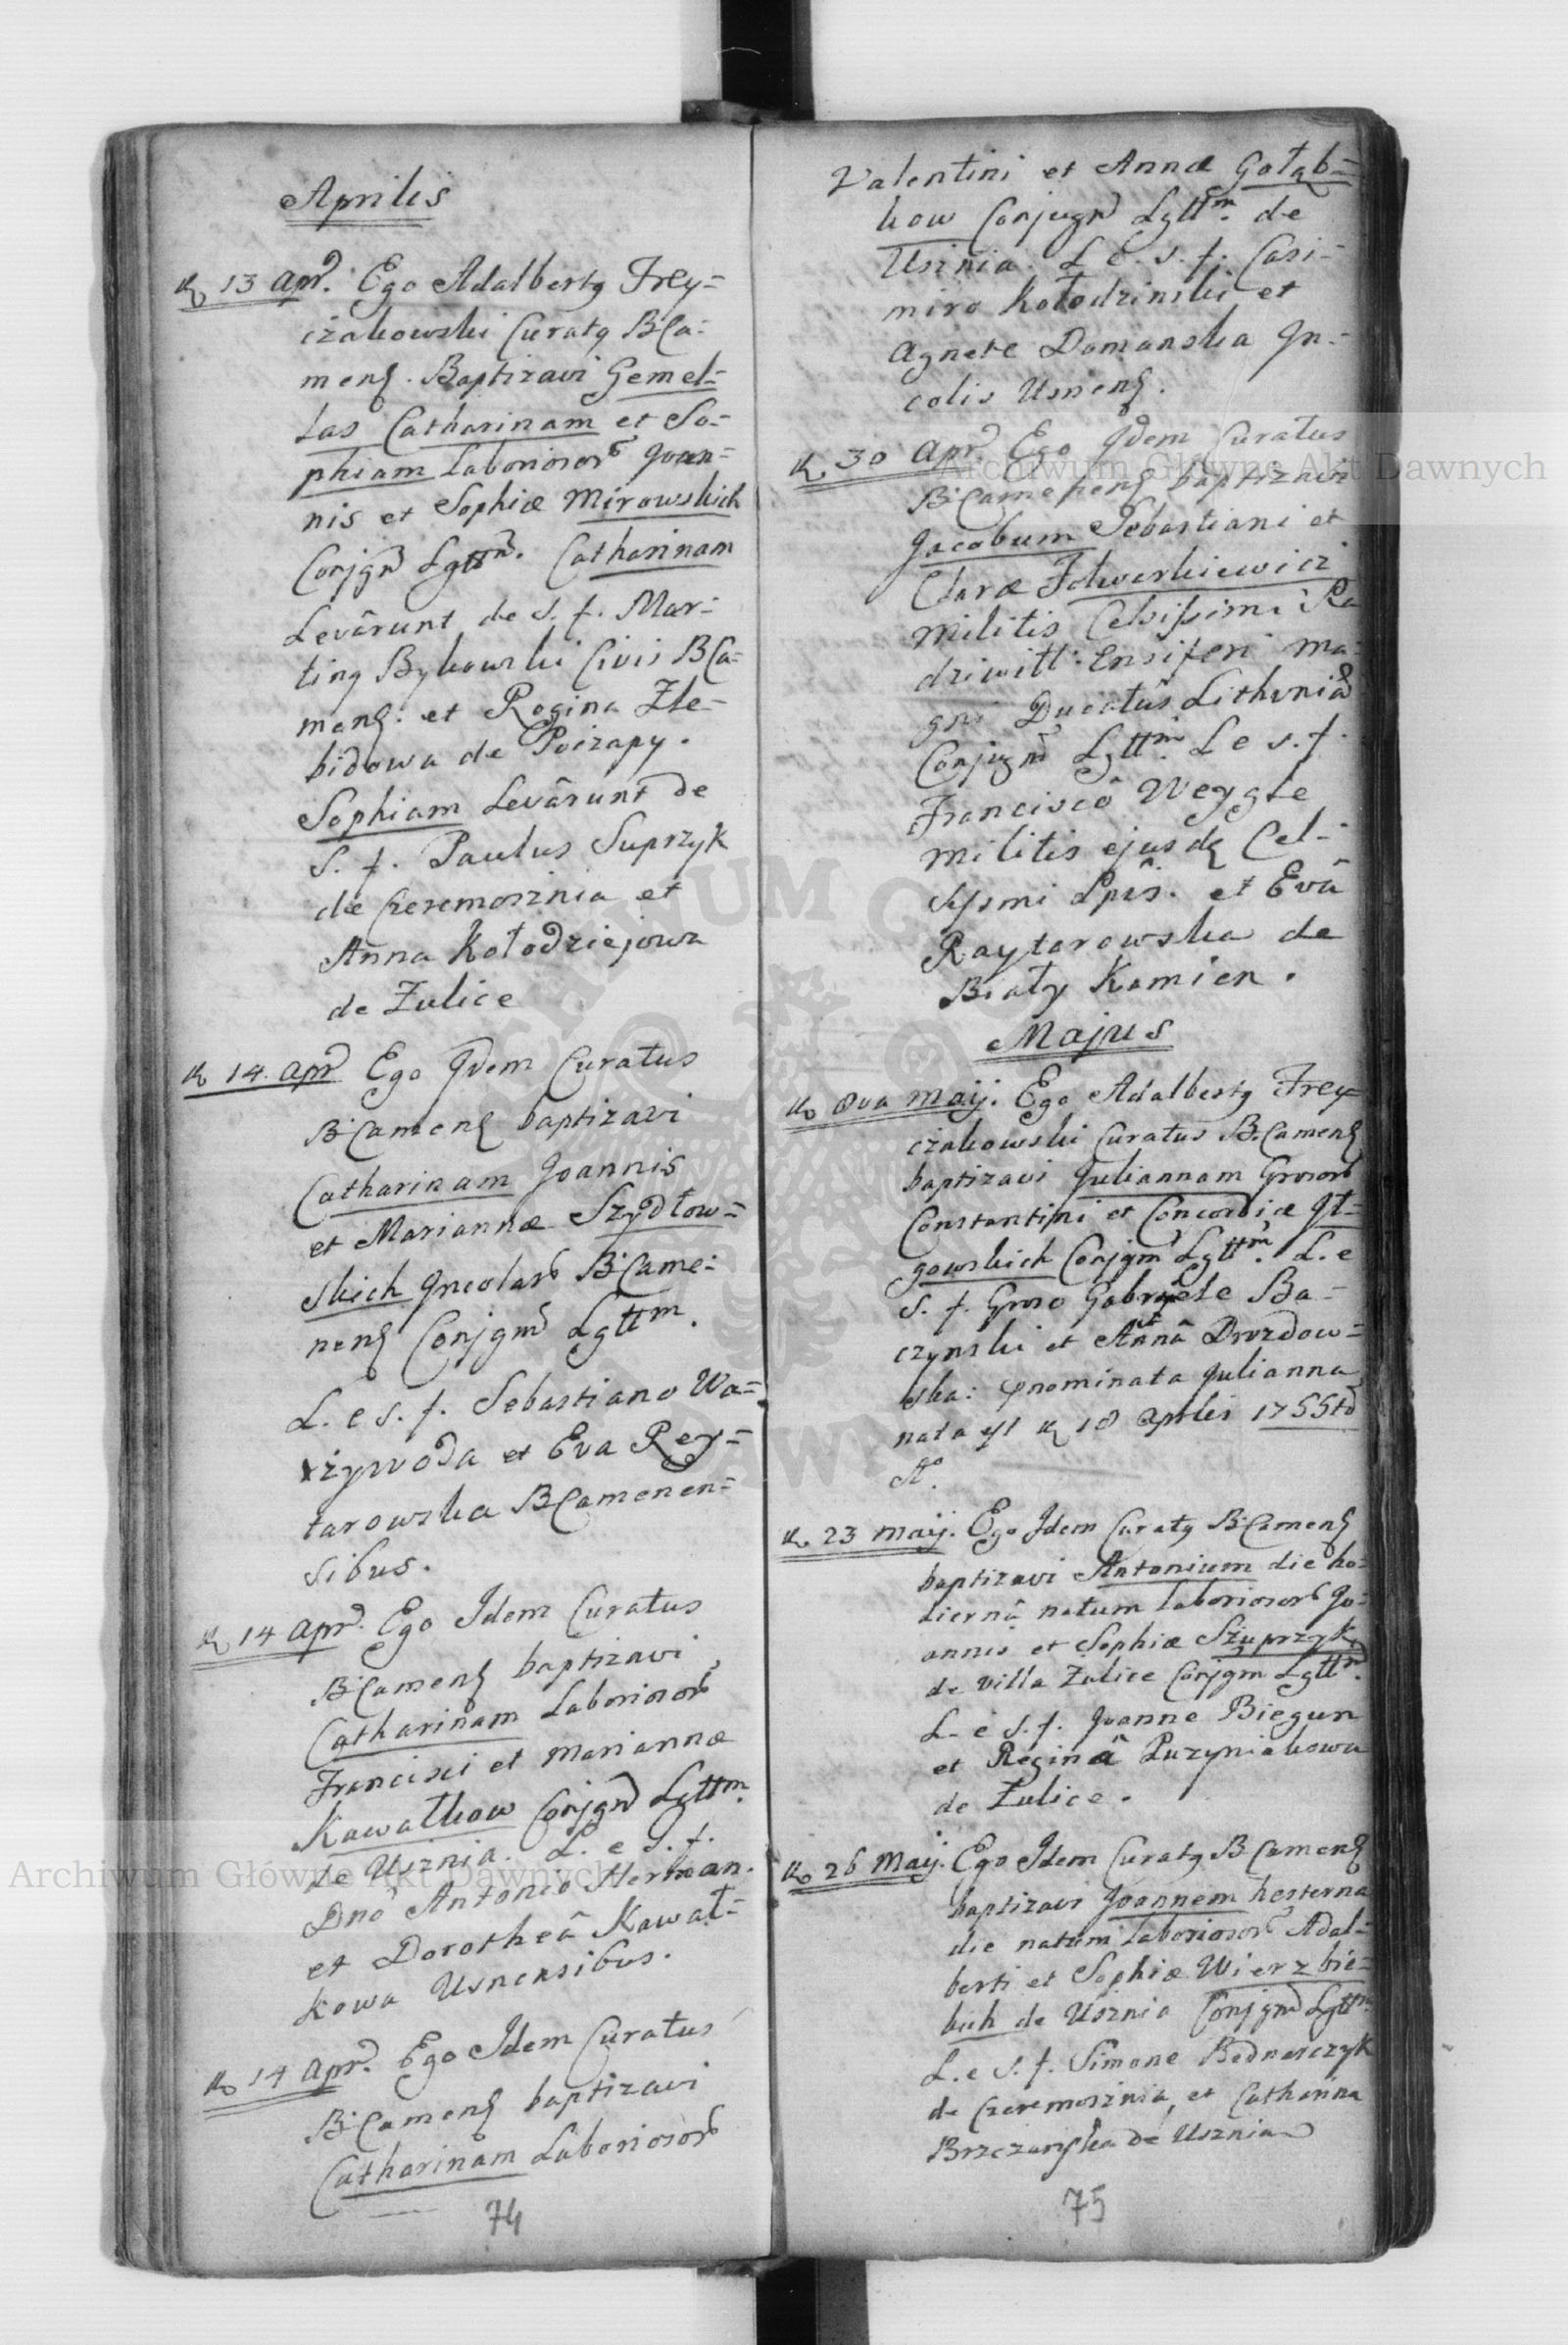 Aprilis
13 Apr. Ego Adalbertq Frey=
czakowski Curatq BCa=
menς. Baptizavi Gemel=
las Catharinam et So=
phiam Laboriosor Joan=
nis et Sophiæ Mirowskich
Conjgm Lgttm. Catharinam
Levârunt de s. f. Mar=
tinq Bykowski Civis BCa=
menς: et Regina Zle=
bidowa de Poczapy.
Sophiam Levârunt de
S. f. Paulus Suprzyk
de Czeremosznia et
Anna Kołodziejowa
de Zulice
14 Apr Ego Idem Curatus
BCamenς baptizavi
Catharinam Joannis
et Mariannæ Szydłow=
skich Incolar BCame=
nenς Conjgm Lgttm.
L. e s. f. Sebastiano Wa=
żywoda et Eva Rey=
tarowska BCamenen=
sibus.
14 Apr. Ego Idem Curatus
BCamenς baptizavi
Catharinam Laboriosor
Francisci et Mariannæ
Kawałkow Conjgm Lgttm.
de Usznia. L. e S. f.
Dno Antonio Herman.
et Dorotheâ Kawał=
kowa Usnensibus.
14 Apr. Ego Idem Curatus
BCamenς baptizavi
Catharinam Laboriosor
74
Valentini et Annæ Gołąb=
kow Conjugm Lgttm. de
Usznia. L e. s. f. Casi=
miro Kołodzinski et
Agnete Domanska In=
colis Usnenς.
30 Apr. Ego Idem Curatus
BCamenenς baptizavi
Jacobum Sebastiani et
Claræ Folwerkiewicz
Militis Celsissimi Ra
dziwiłł: Ensiferi Ma=
gni Ducatûs Lithvniæ
Conjugm Lgttm L e s. f.
Franciscô Weygle
Militis ejusdς Cel=
sissmi Lpis. et Evâ
Raytarowska de
Biały Kamien.
Majus
8va Maij. Ego Adalbertq Frey=
czakowski Curatus B.Camenς
baptizavi Juliannam Grosor
Constantini et Concordiæ Il=
gowskich Conjgm Lgttm. L. e
s. f. Groso Gabryele Ba=
czynski et Annâ Drozdow=
ska: Pnominata Julianna
nata est 18 Aprlis 1755to
Ao.
23 Maij. Ego Idem Curatq BCamenς
baptizavi Antonium die ho=
diernâ natum laboriosor Jo=
annis et Sophiæ Szuprzyk
de villa Zulice Conjgm Lgttm.
L. e s. f. Joanne Biegun
et Reginâ Puzyniakowa
de Zulice.
26 Maij. Ego Idem Curatq B.Camenς
baptizavi Joannem hesterna
die natum laboriosor Adal=
berti et Sophiæ Wierzbic=
kich de Usznia Conjgm Lgttm
L. e s. f. Simone Bednarczyk
de Czeremosznia et Catharina
Brzezanska de Usznia
75
Archiwum Główne Akt Dawnych
Archiwum Główne Akt Dawnych